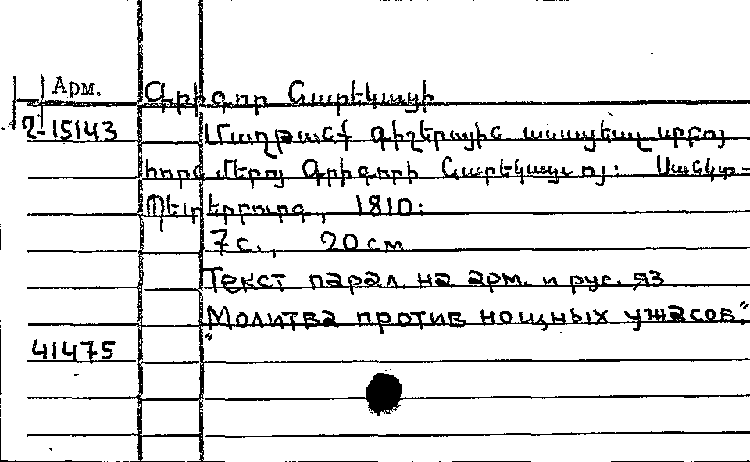 Арм.
Գրիգոր Նարեկացի
2-15143
Մաղթանք գիշերային ասացեալ սրբոյ
հօրն մերոյ Գրիգորի Նարեկացւոյ: Սանկտ-
Պետերբուրգ, 1810:
7 с., 20 см
Текст парал. на арм. и рус. яз
"Молитва против нощных ужасов".
41475